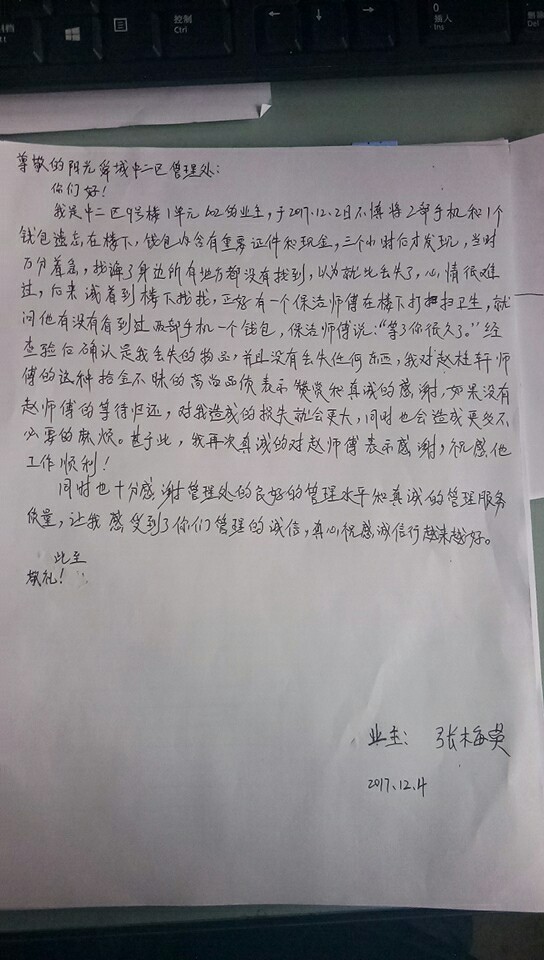 控制
Ctrl
0
插入
Ins
删除
尊敬的阳光舜城中二区管理处:
你们好!
我是中二区9号楼1单元602的业主,于2017.12.2日不慎将2部手机和1个
钱包遗忘在楼下,钱包内含有重要证件和现金,三个小时后才发现,当时
万分着急,找遍了身边所有地方都没有找到,以为就此丢失了,心情很难
过,后来试着到楼下找找,正好有一个保洁师傅在楼下打扫卫生,就
问他有没有看到过两部手机一个钱包,保洁师傅说:“等了你很久了。”经
查验后确认是我丢失的物品,并且没有丢失任何东西,我对赵桂轩师
傅的这种拾金不昧的高尚品质表示赞赏和真诚的感谢,如果没有
赵师傅的等待归还,对我造成的损失就会更大,同时也会造成更多不
必要的麻烦。基于此,我再次真诚的对赵师傅表示感谢,祝愿他
工作顺利!
同时也十分感谢管理处的良好的管理水平和真诚的管理服务
质量,让我感受到了你们管理的诚信,真心祝愿诚信行越来越好。
此至
敬礼!
业主: 张梅英
2017.12.4